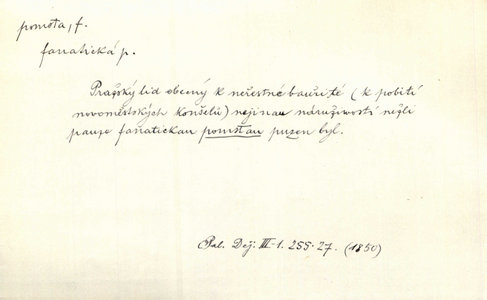 pomsta, f.
fanatická p.
Pražský lid obecný k neřestné bauřité (k pobití
novoměstských konšelů) nejinau náruživostí nežli
pauze fanatickau pomstau puzen byl.
Pal. Děj. III-1. 255-27. (1850)